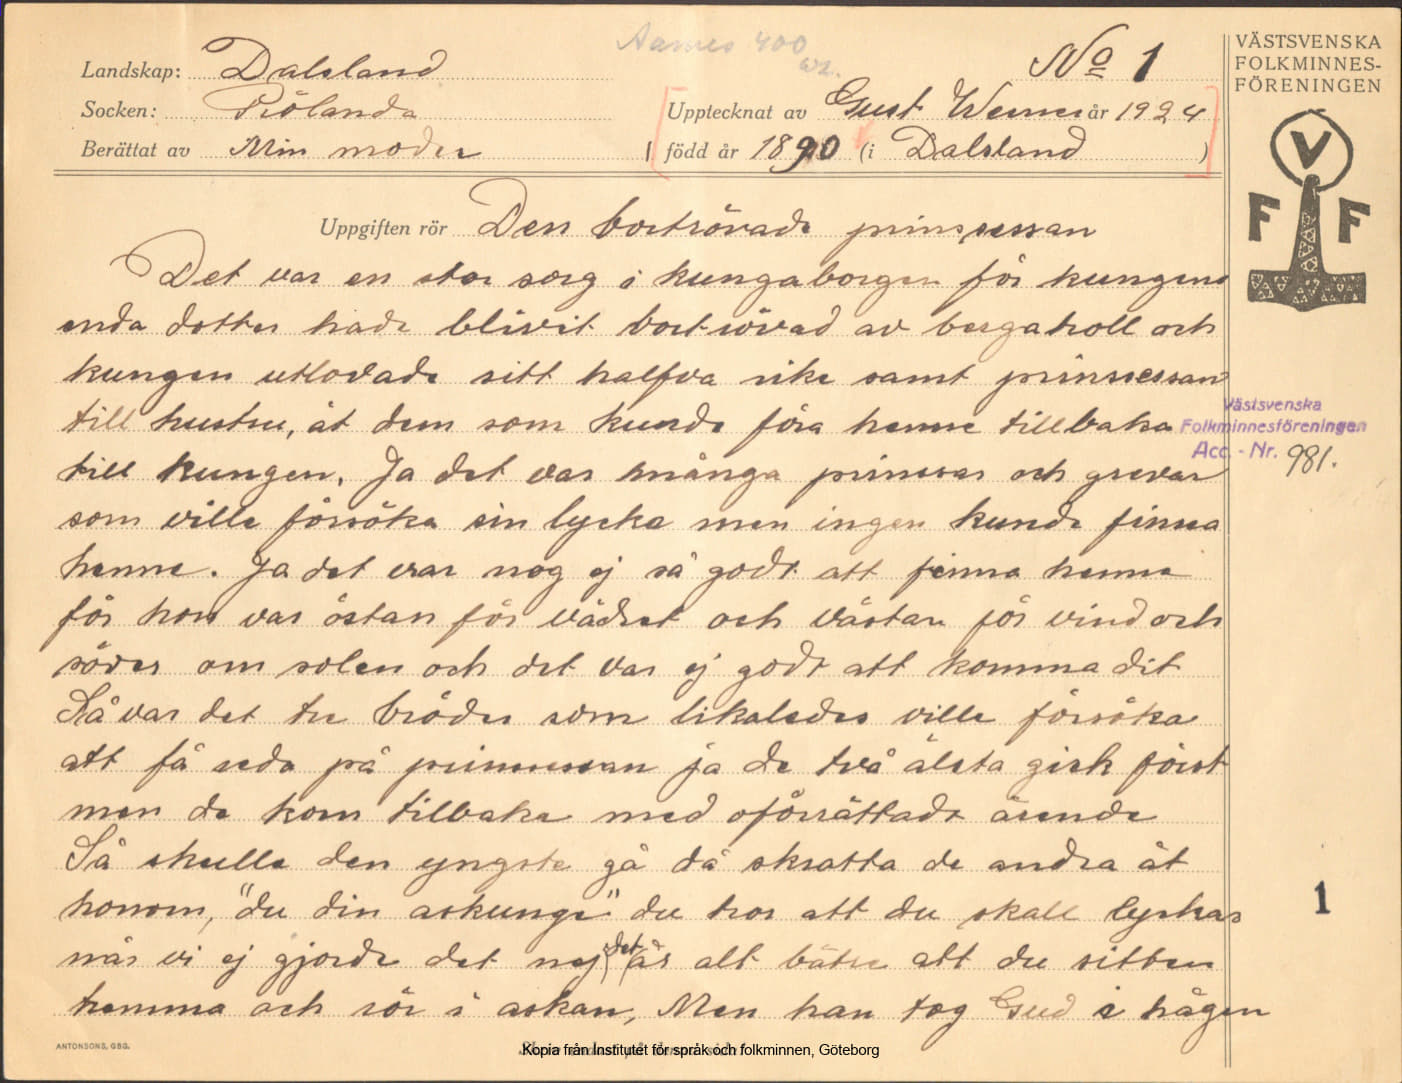 Aarnes 400
Landskap: Dalsland
Socken: Rölanda
Berättat av Min moder
No 1
Upptecknat av Gust Werner år 1924
född år 1890 (i Dalsland )
VÄSTSVENSKA
FOLKMINNES-
FÖRENINGEN
V
F F
Uppgiften rör Den bortrövade prinsessan
Det var en stor sorg i kungaborgen för kungens
enda dotter hade blivit bortrövad av bergatroll och
kungen utlovade sitt halfva rike samt prinsessan
till hustru, åt dem som kunde föra henne tillbaka
till kungen. Ja det var många prinsar och grevar
som ville försöka sin lycka men ingen kunde finna
henne. Ja det var nog ej så godt att finna henne
för hon var östan för vädret och västan för vind och
söder om solen och det var ej godt att komma dit
Så var det tre bröder som likaledes ville försöka
att få reda på prinsessan ja de två älsta gick först
men de kom tilbaka med oförrättade ärende
Så skulle den yngste gå då skratta de andra åt
honom, "du din askunge" du tror att du skall lyckas
när vi ej gjorde det nej det är alt bätre att du sitter
hemma och rör i askan, Men han tog Gud i hågen
Västsvenska
Folkminnesföreningen
Acc. - Nr. 981.
1
ANTONSONS, GBG.
Kopia från Institutet för språk och folkminnen, Göteborg